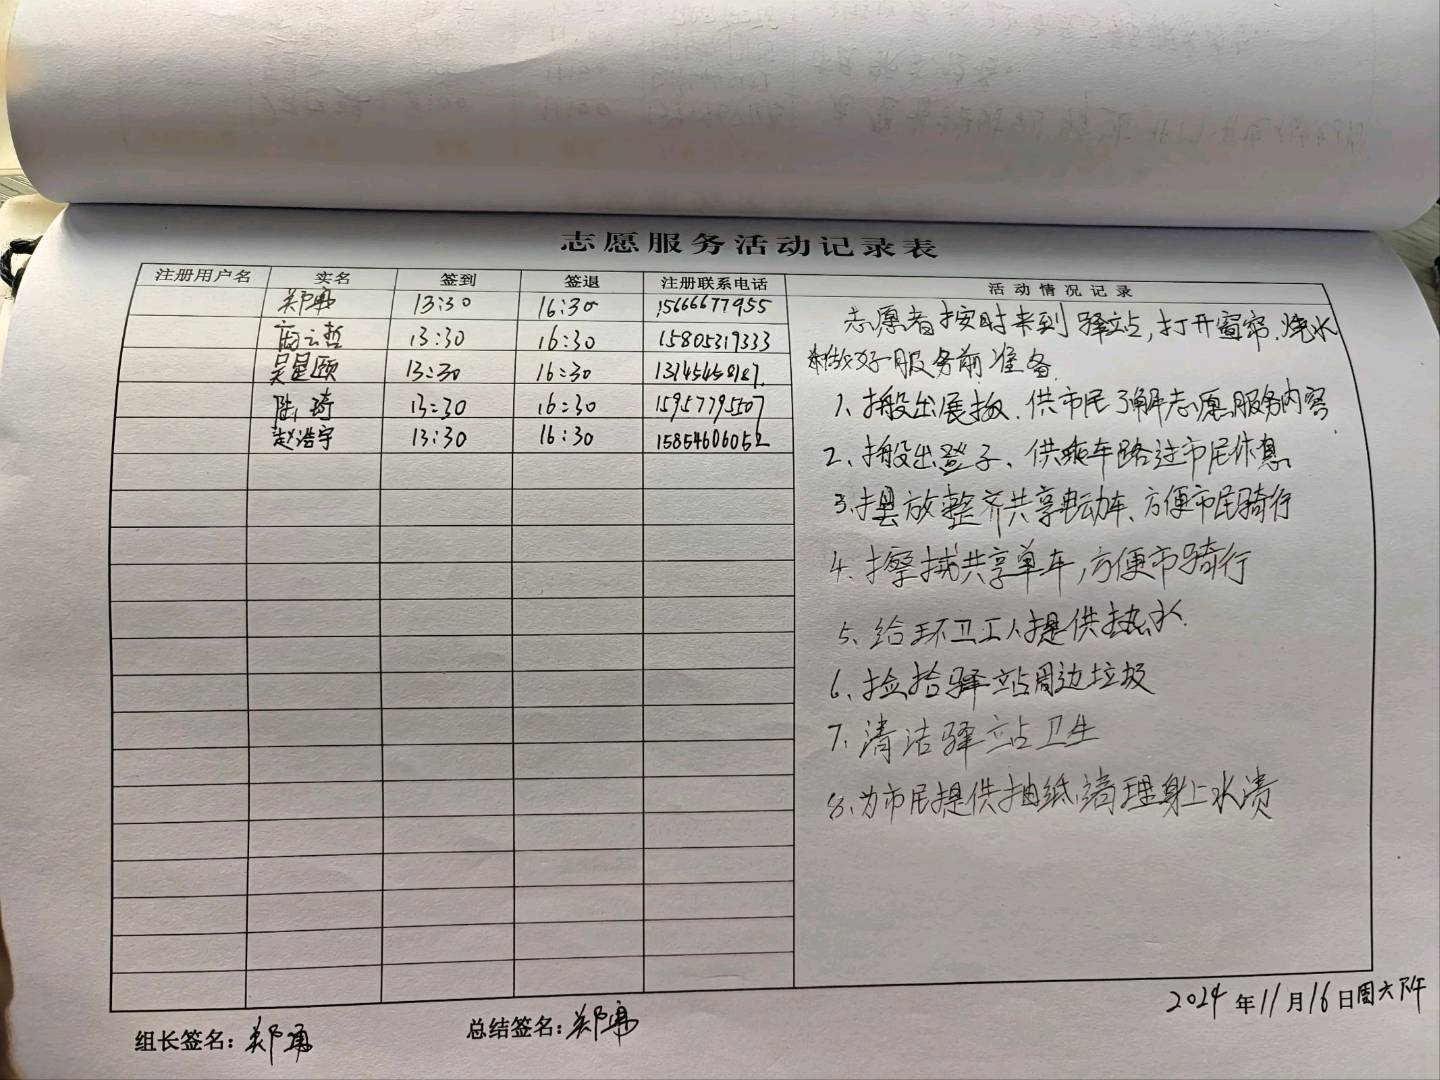 志愿服务活动记录表
注册用户名 实名 签到 签退 注册联系电话 活动情况记录
郑勇 13:30 16:30 15666677955
商云哲 13:30 16:30 15805319333
吴星颐 13:30 16:30 13145458187
陆琦 13:30 16:30 15957795507
赵浩宇 13:30 16:30 15854606052
志愿者按时来到驿站,打开窗帘.烧水
做好服务前准备
1、搬出展板、供市民了解志愿服务内容
2、搬出登子、供乘车路过市民休息
3、摆放整齐共享电动车、方便市民骑行
4、擦拭共享单车,方便市骑行
5、给环卫工人提供热水
6、捡拾驿站周边垃圾
7、清洁驿站卫生
8、为市民提供抽纸、清理身上水渍
2024年11月16日周六下午
组长签名:郑勇 总结签名:郑勇